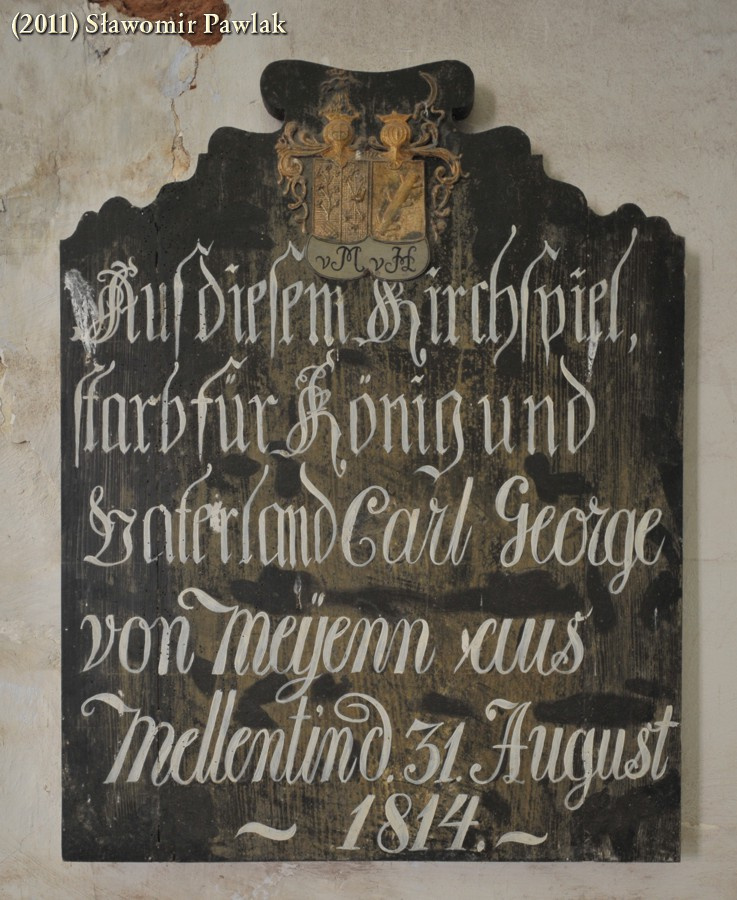 (2011) Sławomir Pawlak
vM vH
Aus diesem Kirchspiel,
starb für König und
Vaterland Carl George
von Meÿenn aus
Mellentin d. 31. August
~ 1814. ~